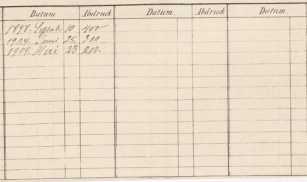 Datum Abdruck Datum Abdruck Datum
1898. Septb. 10 400
1904. Juni 25 300
23 200.